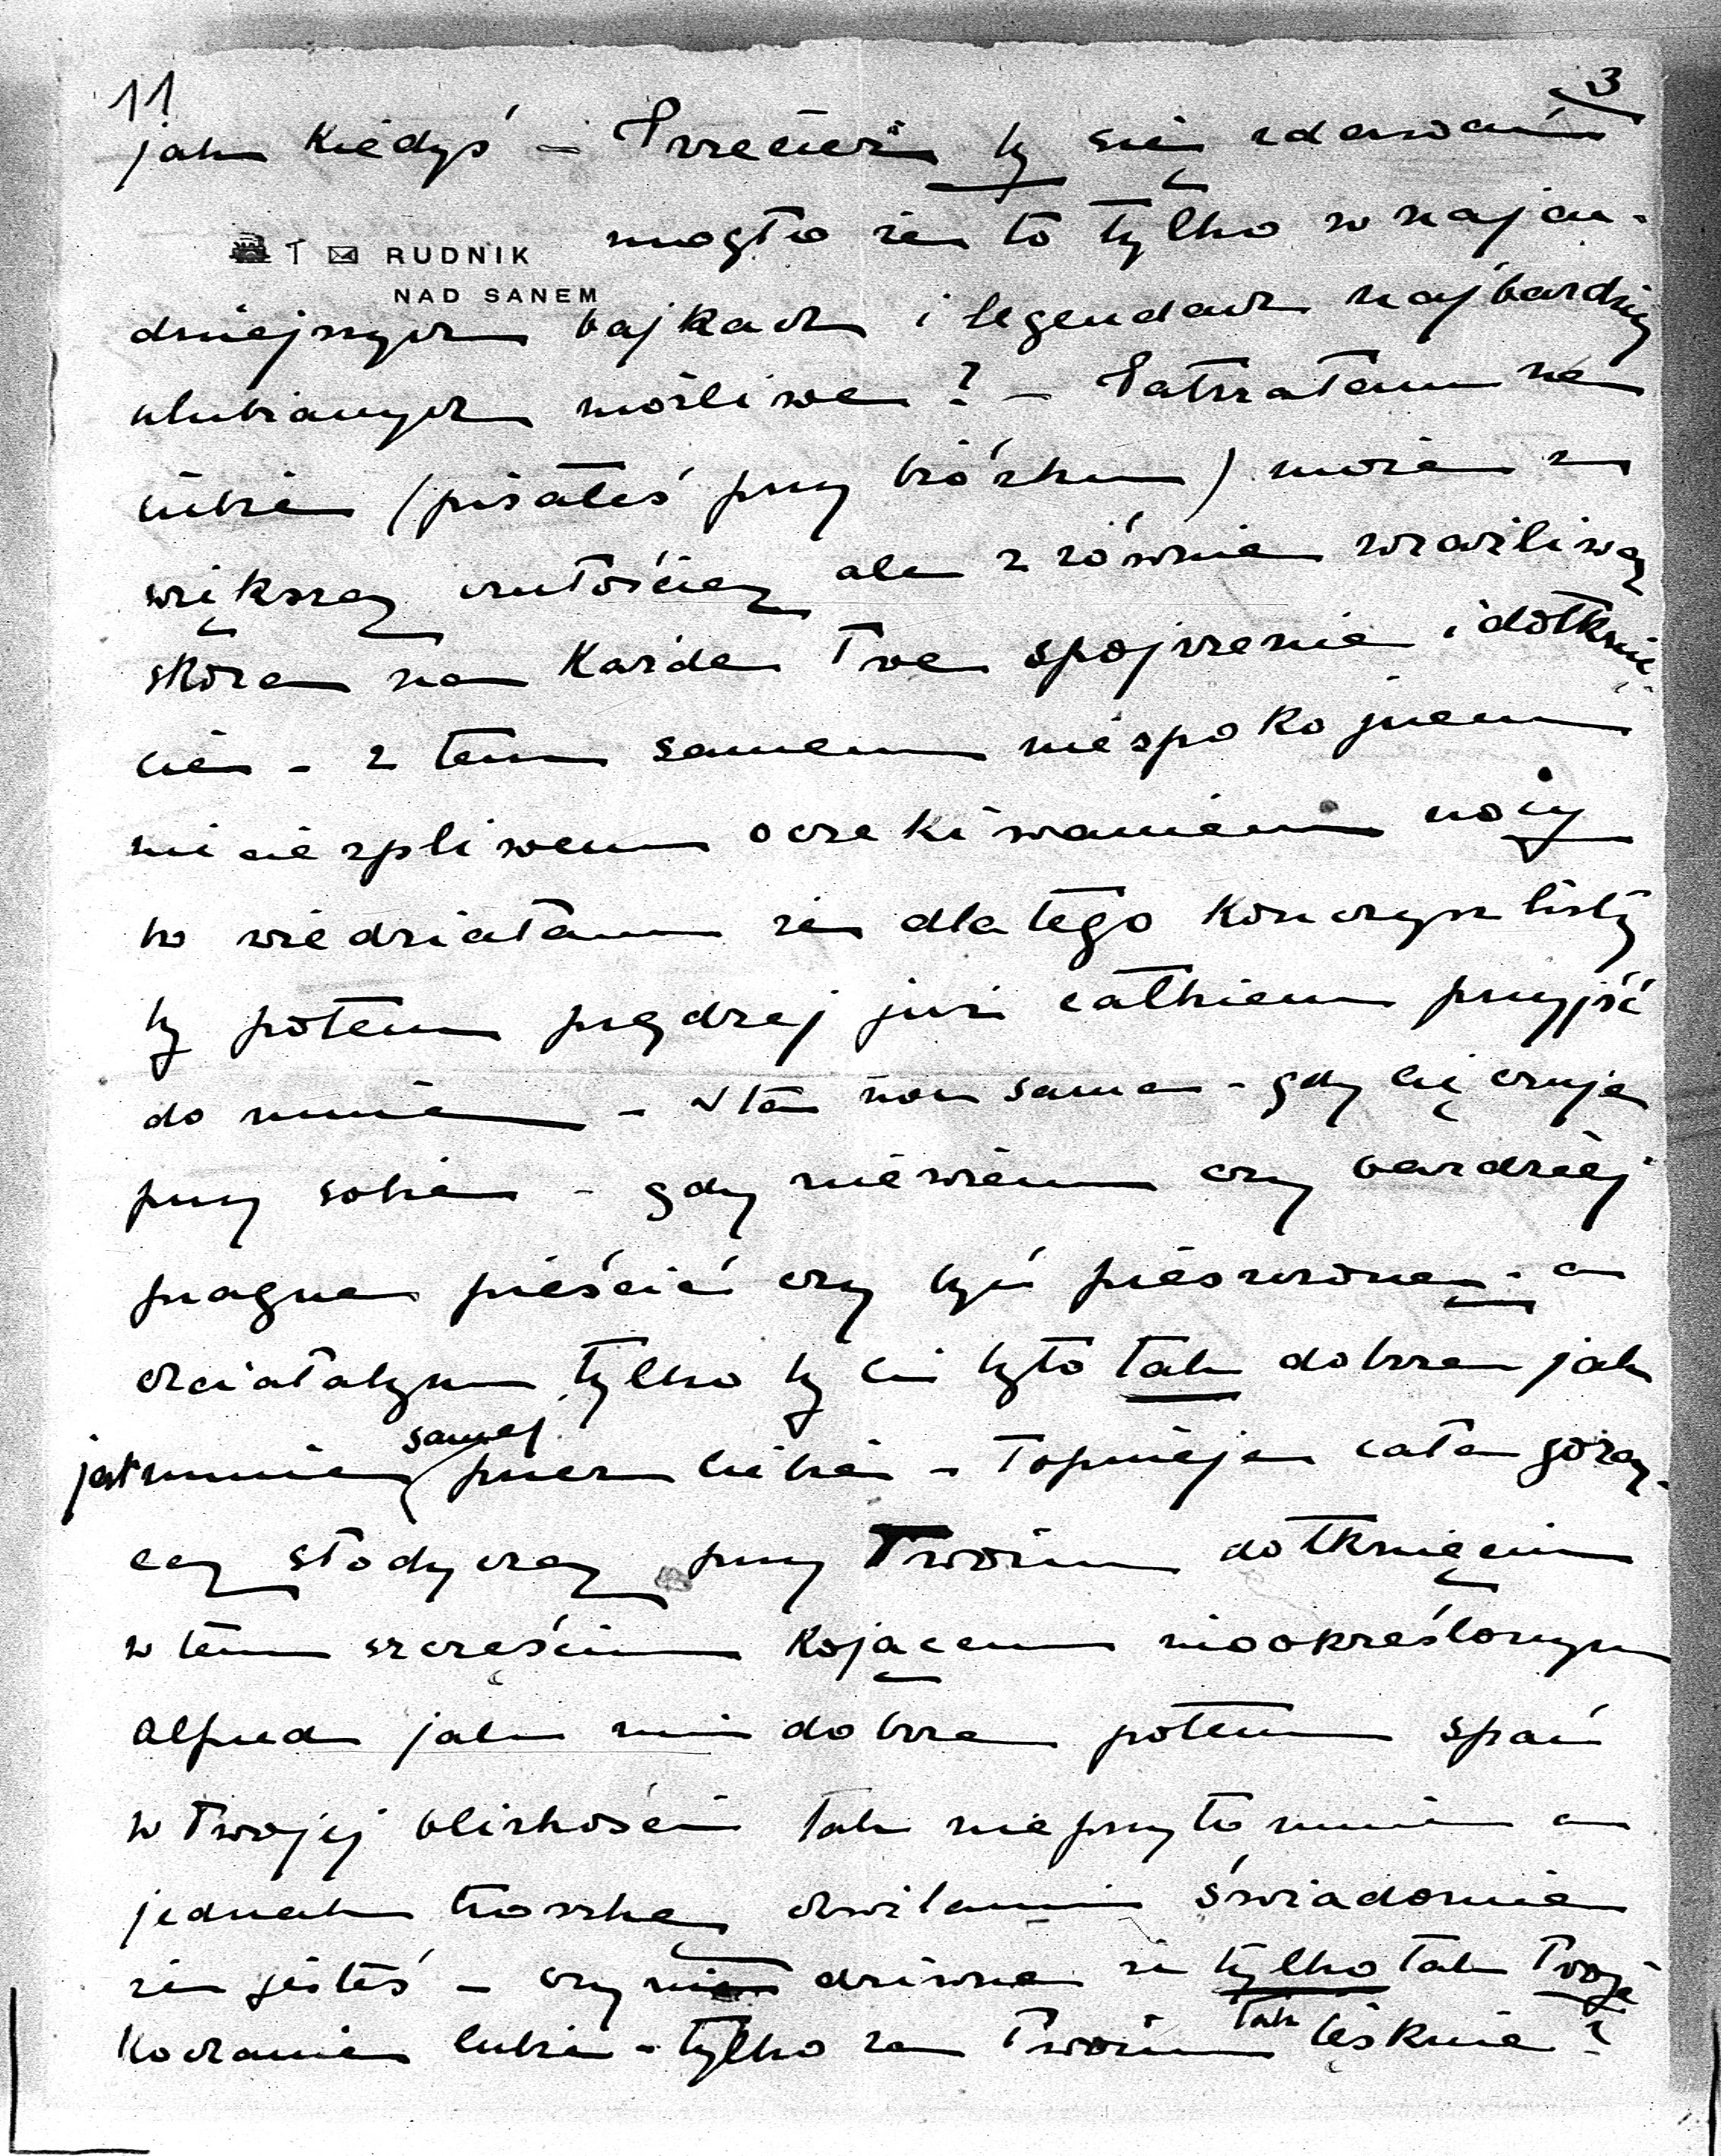 11 3
jak kiedyś – Przecież by się zdawać
mogło że to tylko w najcu-
RUDNIK
NAD SANEM
dniejszych bajkach i legendach najbardziej
ulubianych możliwe? – Patrzałam na
ciebie (pisałeś przy biórku) może z
większą czułością ale z równie wrażliwą
skórą na każde Twe spojrzenie i dotknię-
cie – z tem samem niespokojnem
niecierpliwem oczekiwaniem nocy
bo wiedziałam że dlatego kończysz listy
by potem prędzej już całkiem przyjść
do mnie – ta sama – gdy cię czuję
przy sobie – gdy nie wiem czy bardziej
pragnę pieścić czy być pieszczoną – a
chciałabym tylko by ci było tak dobrze jak
jest mnie samej przez ciebie – topnieję cała gorą-
cą słodyczą przy Twoim dotknięciu
w tem szczęściu kojącem nieokreślonym
Alfred jak mi dobrze potem spać
w Twojej bliskości tak nieprzytomnie a
jednak troszkę chwilami świadomie
że jesteś – czy nie dziwne że tylko tak Twoje
kochanie lubię – tylko za Twoim tak tęsknię?